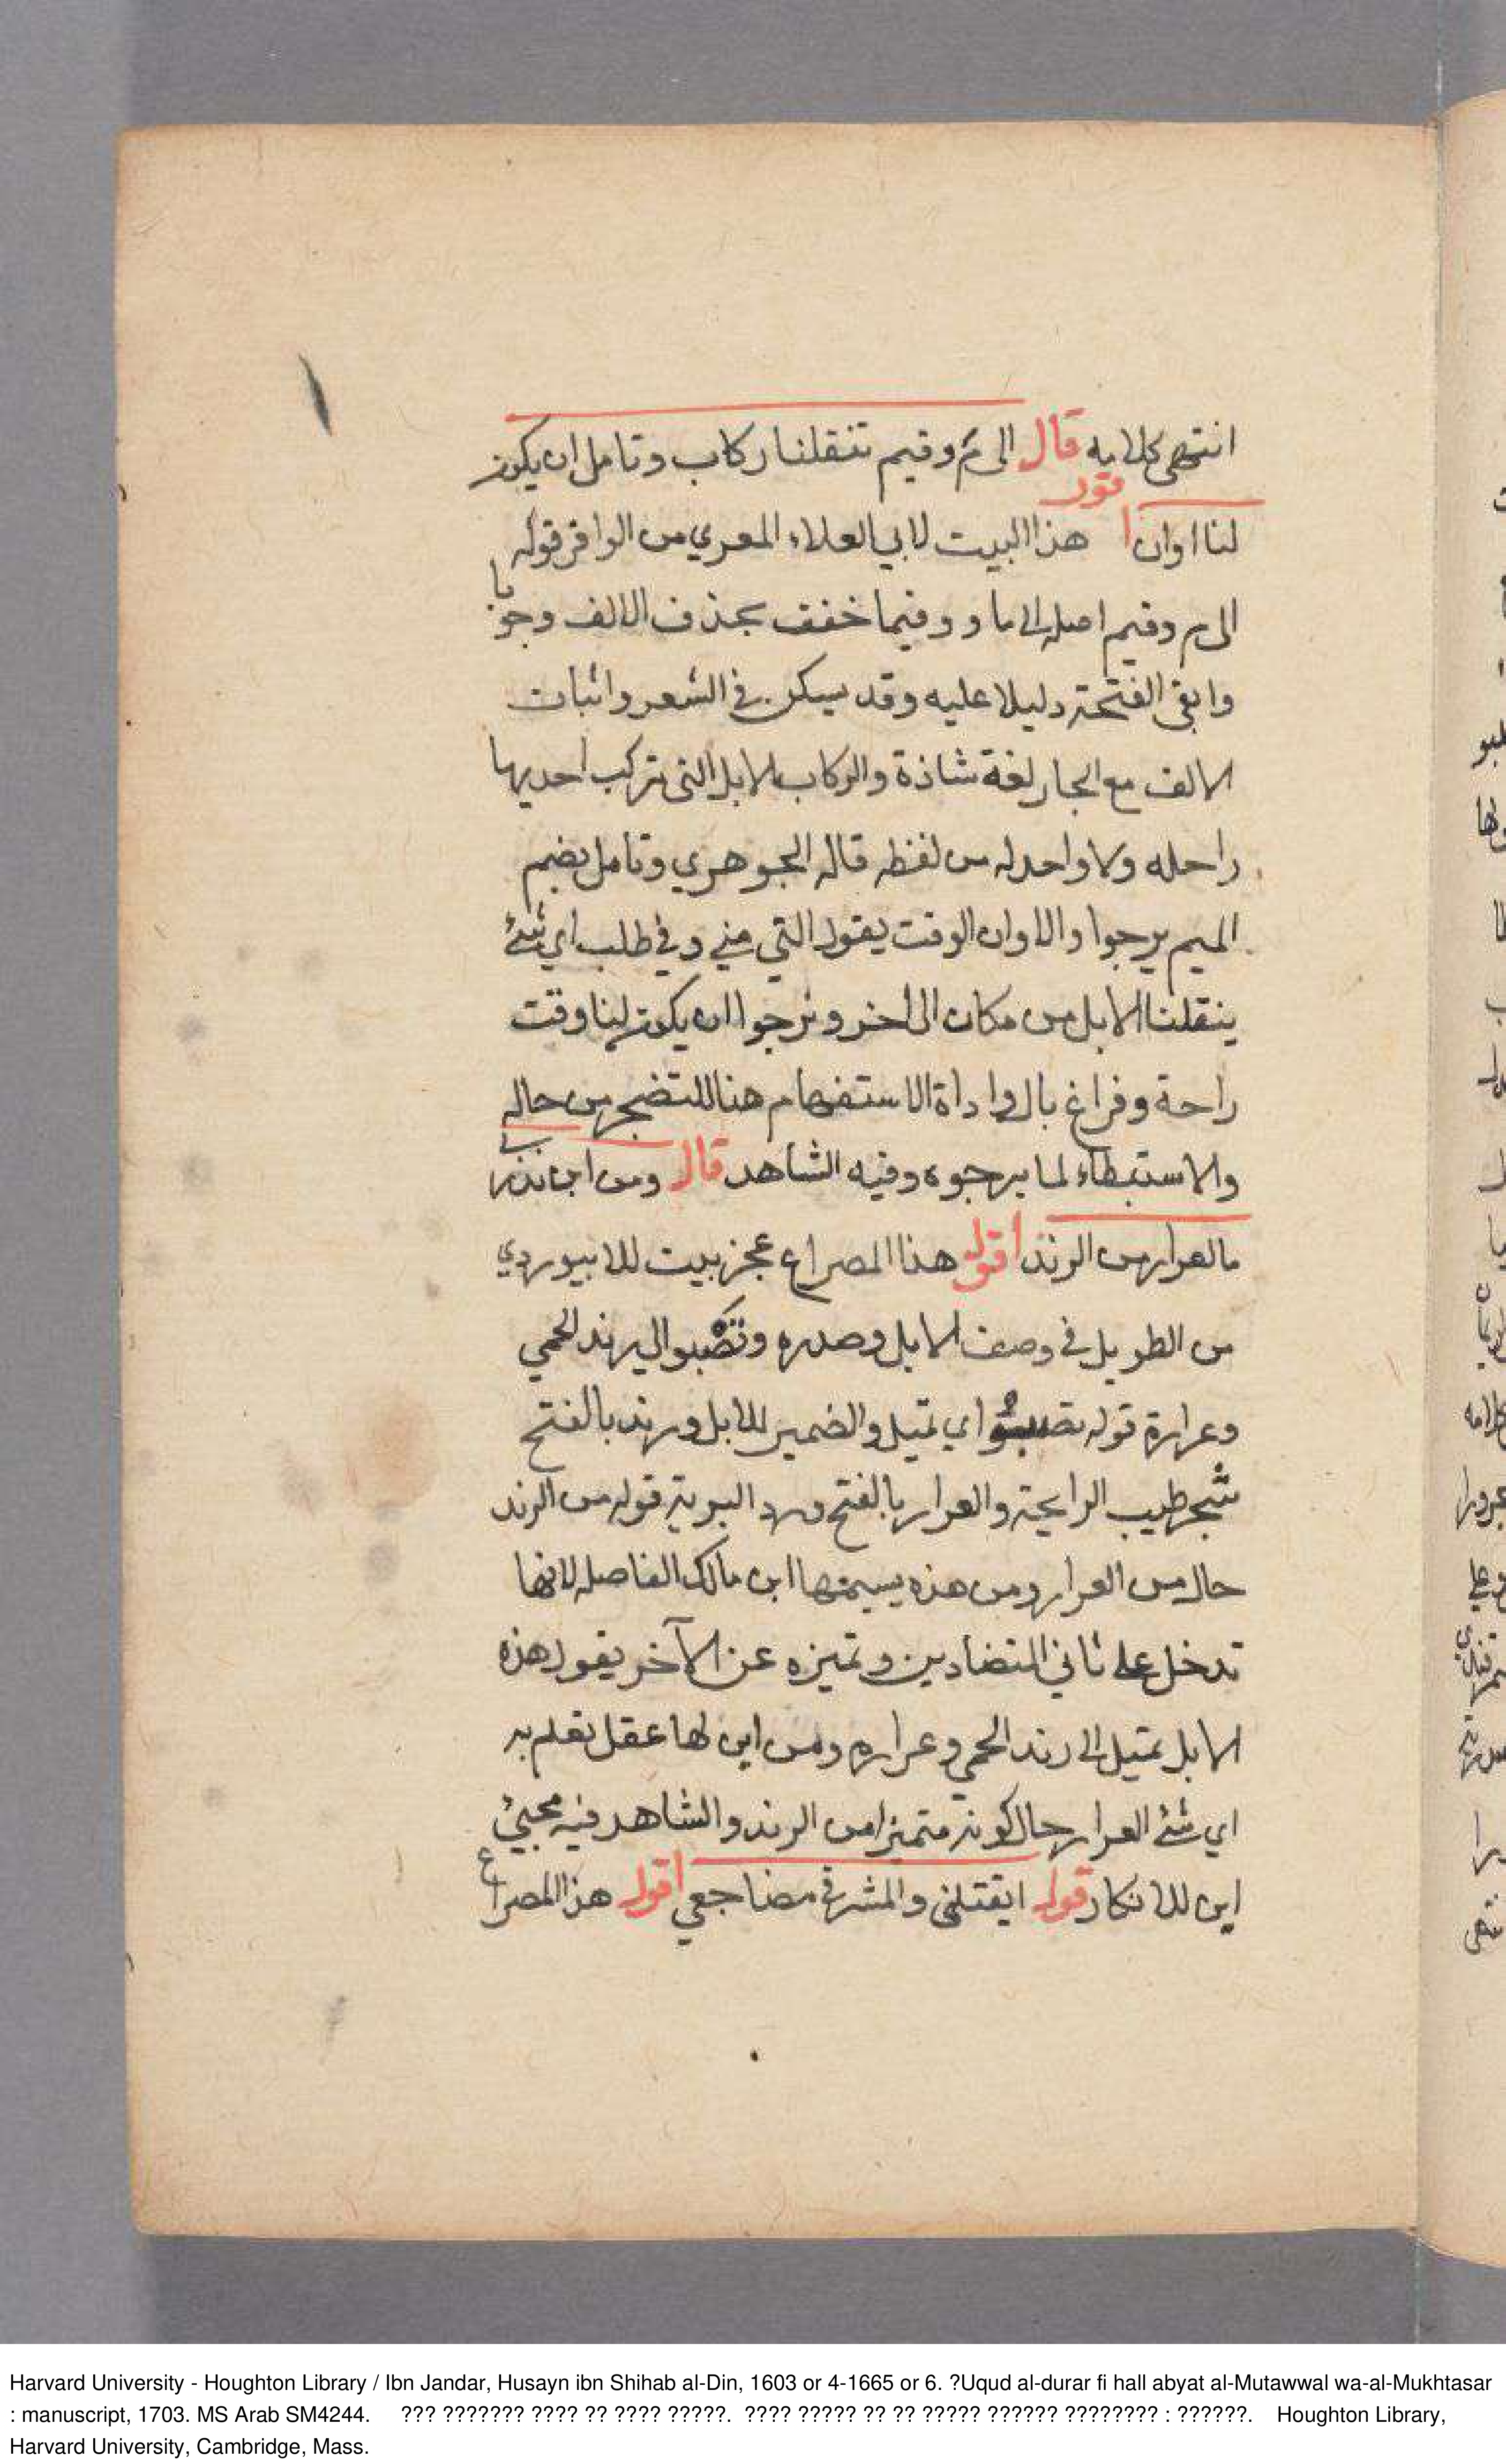 انتهى كلامه قال الى م وفيم تنقلنا ركاب وتامل ان يكون
لنا اوان اقول هذا البيت لابي العلاء المعري من الوافر قوله
الى م وفيم اصله الى ما و وفيما خفف بحذف الالف وجوبا
وابقى الفتحة دليلا عليه وقد يسكن في الشعر واثبات
الالف مع الجار لغة شاذة والركاب الابل التي تركب احديها
راحله ولا واحد له من لفظه قاله الجوهري وتامل بضم
الميم يرجوا والاوان الوقت يقول التي مني وفي طلب اي شئ
ينقلنا الابل من مكان الى اخر ونرجوا ان يكون لنا وقت
راحة وفراغ بال واداة الاستفهام هنا للتضجر من حاله
والاستبطاء لما يرجوه وفيه الشاهد قال ومن اين تدري
ما العرار من الرند اقول هذا المصراع عجز بيت للابيوردي
من الطويل في وصف الابل وصدره وتصبو الى رند الحمي
وعراره قوله تصبو اي تميل والضمير للابل ورند بالفتح
شجر طيب الرايحة والعرار بالفتح ورد البرية قوله من الرند
حال من العرار ومن هذه يسميها ابن مالك الفاصله لانها
تدخل على ثاني المتضادين وتميزه عن الآخر يقول هذه
الابل تميل الى رند الحمي وعراره ومن اين لها عقل تعلم به
اي شئ العرار حال كونه متميزا من الرند والشاهد فيه مجيئ
اين للانكار قوله ايقتلني والمشرفي مضاجعي اقول هذا المصراع
Harvard University - Houghton Library / Ibn Jandar, Husayn ibn Shihab al-Din, 1603 or 4-1665 or 6. ?Uqud al-durar fi hall abyat al-Mutawwal wa-al-Mukhtasar
: manuscript, 1703. MS Arab SM4244. ??? ??????? ???? ?? ???? ?????. ???? ????? ?? ?? ????? ?????? ???????? : ??????. Houghton Library,
Harvard University, Cambridge, Mass.